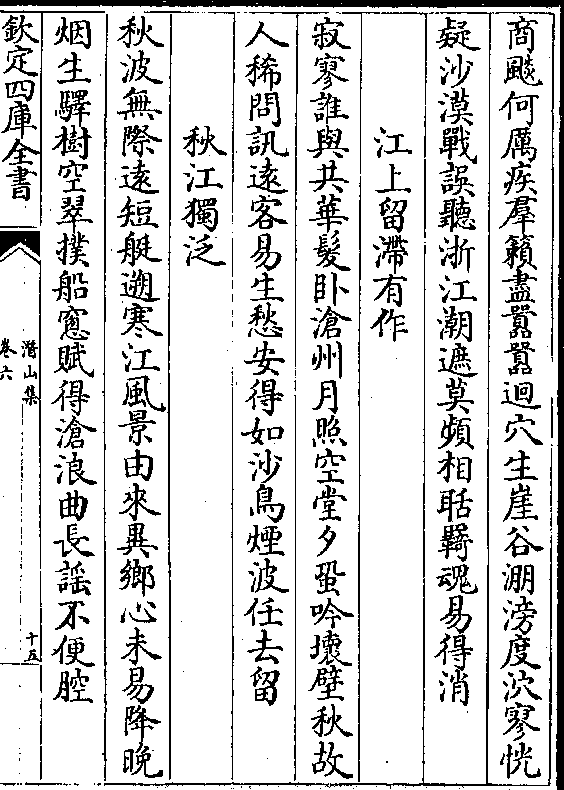 商飈何厲疾羣籟盡囂囂迴穴生崖谷淜滂度泬寥恍
疑沙漠戰誤聽浙江潮遮莫頻相聒羇魂易得消
江上留滯有作
寂寥誰與共華髮卧滄州月照空堂夕蛩吟壞壁秋故
人稀問訊逺客易生愁安得如沙鳥煙波任去留
秋江獨泛
秋波無際逺短艇遡寒江風景由來異鄉心未易降晚
烟生驛樹空翠撲船窓賦得滄浪曲長謡不便腔
欽定四庫全書
潛山集
卷六
十五